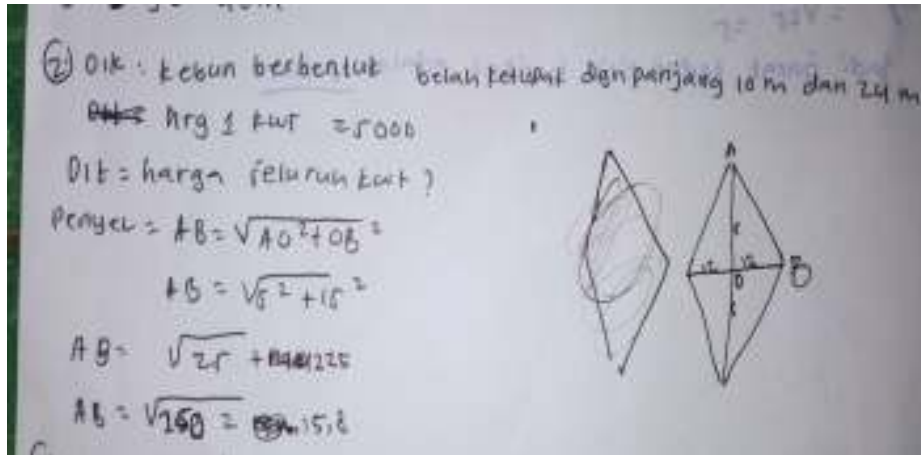 ② Dik : kebun berbentuk belah ketupat dgn panjang 10 m dan 24 m
hrg 1 kwt = 5000
Dit = harga seluruh kwt ?
Penyel = AB = √AO² + OB²
AB = √5² + 15²
AB = √25 + 225
AB = √250 = 15,8
A
12 12
O
B